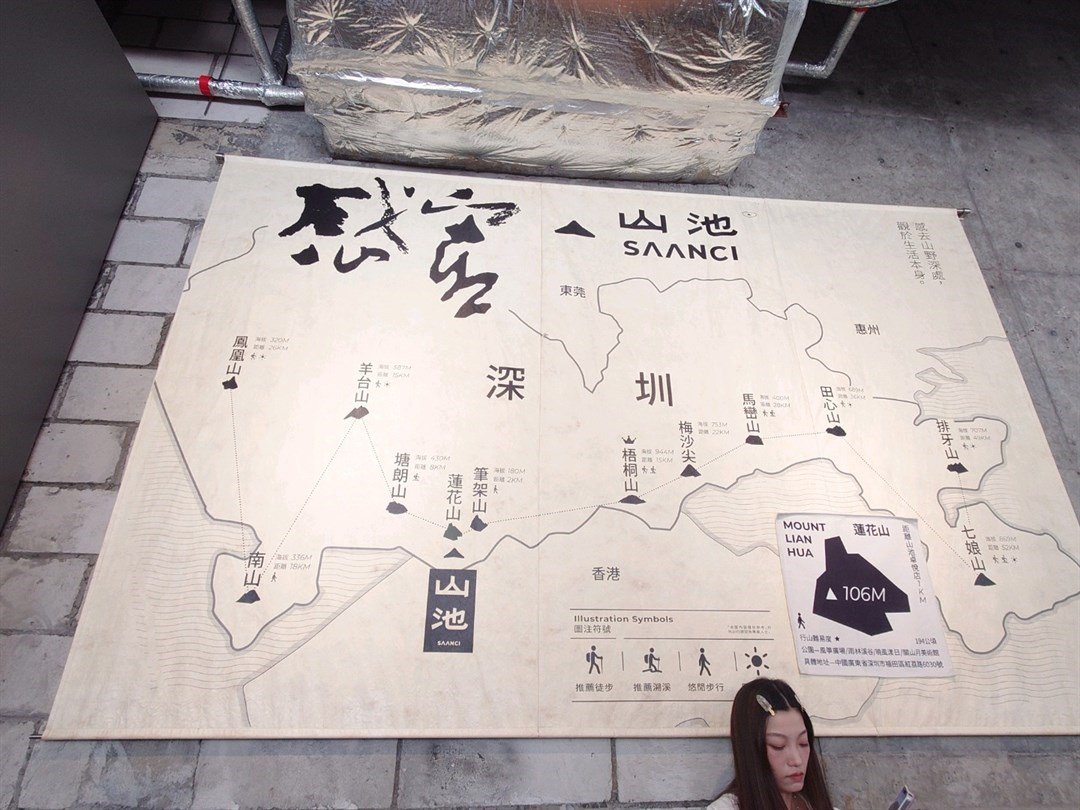 感官
山池
SAANCI
感去山野深處，
觀於生活本身。
東莞
惠州
深圳
鳳凰山
海拔 320M
距離 26KM
羊台山
海拔 587M
距離 15KM
塘朗山
海拔 430M
距離 8KM
蓮花山
筆架山
海拔 180M
距離 2KM
梧桐山
海拔 944M
距離 15KM
梅沙尖
海拔 753M
距離 22KM
馬巒山
海拔
距離 28KM
田心山
海拔 689M
距離
排牙山
海拔 707M
距離
七娘山
海拔
距離 52KM
南山
海拔 336M
距離 18KM
山池
SAANCI
香港
Illustration Symbols
圖注符號
推薦徒步
推薦溯溪
悠閒步行
MOUNT
LIAN
HUA
蓮花山
106M
距離山池卓悅店1KM
行山難易度 ★
194公頃
公園—風箏廣場/雨林溪谷/曉風漾日/關山月美術館
具體地址—中國廣東省深圳市福田區紅荔路6030號